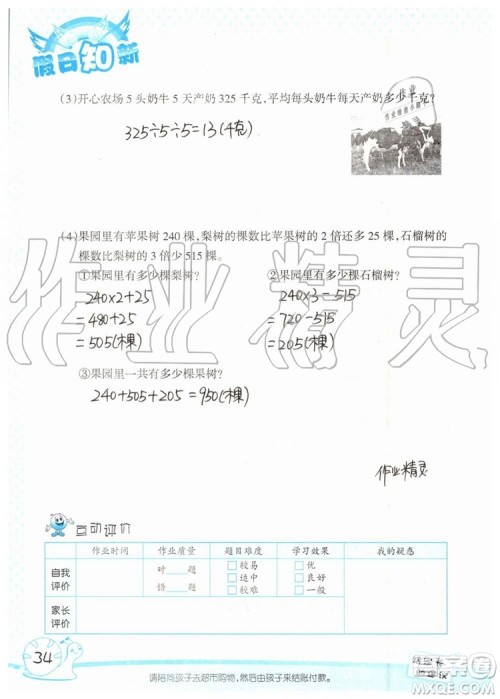 假日知新
(3)开心农场5头奶牛5天产奶325千克,平均每头奶牛每天产奶多少千克?
325÷5÷5=13(千克)
(4)果园里有苹果树240棵,梨树的棵数比苹果树的2倍还多25棵,石榴树的
棵数比梨树的3倍少515棵。
①果园里有多少棵梨树?
240×2+25
=480+25
=505(棵)
②果园里有多少棵石榴树?
240×3-515
=720-515
=205(棵)
③果园里一共有多少棵果树?
240+505+205=950(棵)
作业精灵
作业精灵
互动评价
作业时间 作业质量 题目难度 学习效果 我的疑惑
自我评价 对__题 错__题 □较易 □适中 □较难 □优 □良好 □一般
家长评价
34
请陪同孩子去超市购物,然后由孩子来结账付款。
MXQE.COM